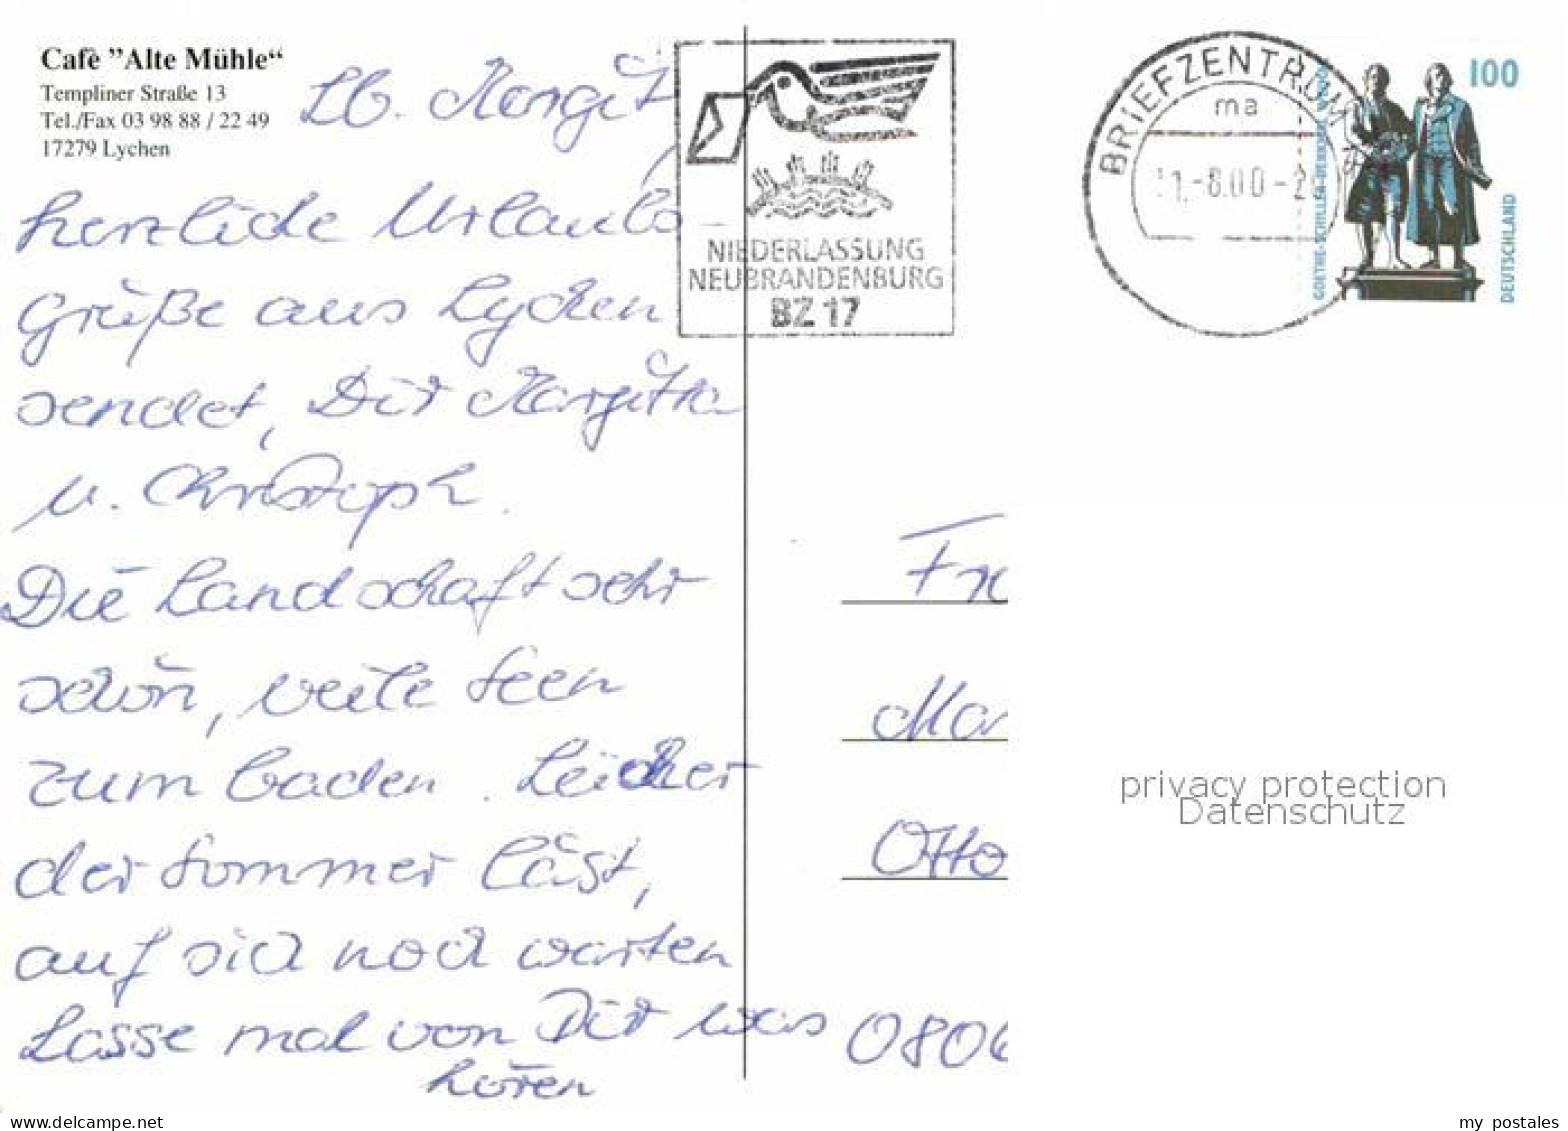 Cafè "Alte Mühle“
Templiner Straße 13
Tel./Fax 03 98 88 / 22 49
17279 Lychen
Lb. Margit,
herzliche Urlaubs-
grüße aus Lychen
sendet, Dir Margitta
u. Christoph.
Die Landschaft sehr
schön, viele Seen
zum baden. Leider
der Sommer läst,
auf sich noch warten
Lasse mal von Dir was
hören
NIEDERLASSUNG
NEUBRANDENBURG
BZ 17
BRIEFZENTRUM
ma
1.-8.00-2
100
GOETHE-SCHILLER-DENKMAL
DEUTSCHLAND
Fr
Ma
Otto
0806
privacy protection
Datenschutz
www.delcampe.net
my_postales